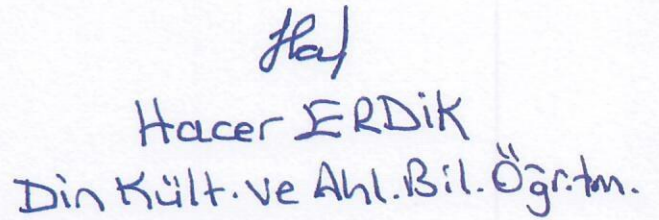 Hacer ERDİK
Din Kült. ve Ahl. Bil. Öğr.tm.